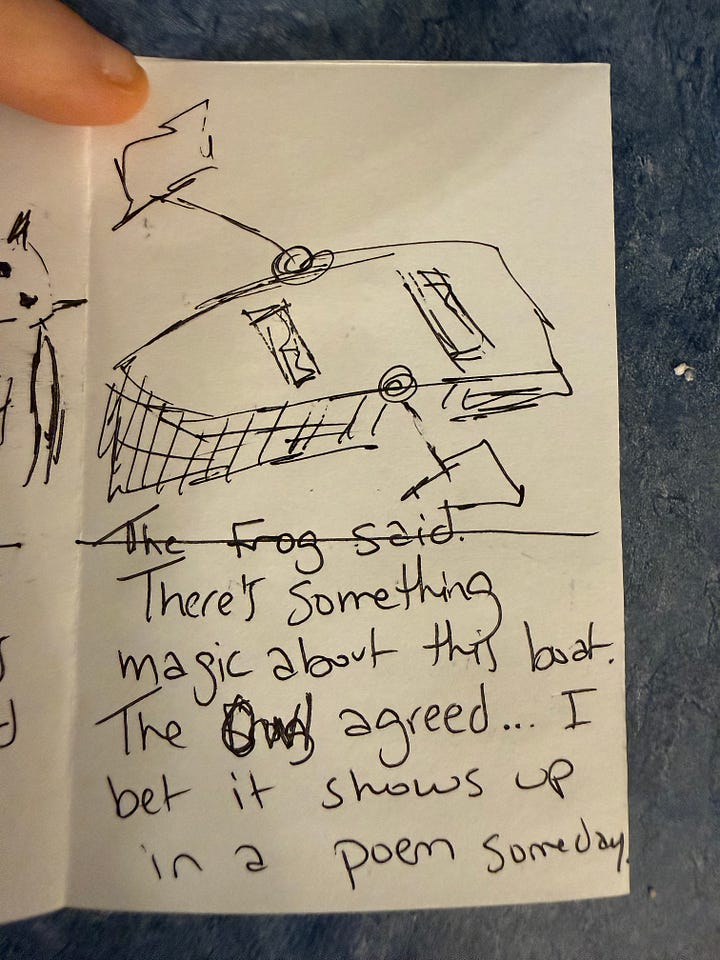 The Frog said.
There's something
magic about this boat.
The agreed... I
bet it shows up
in a poem someday.